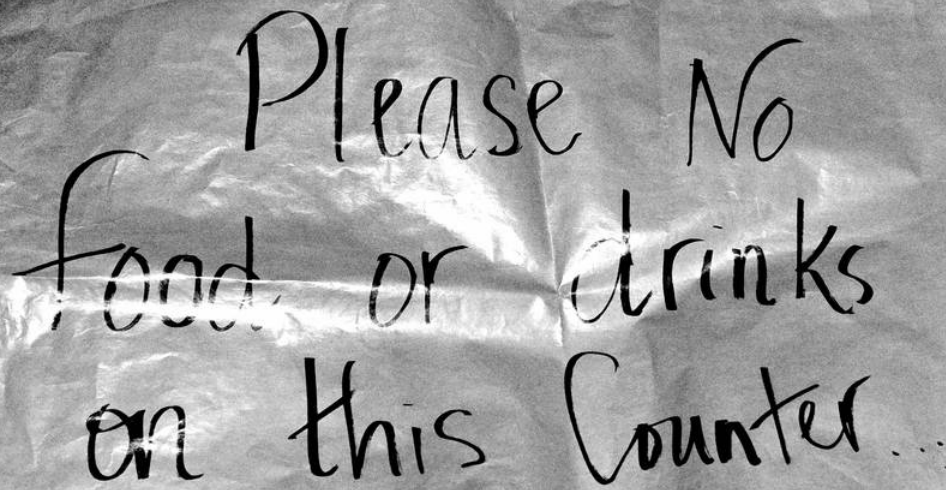 Please No
food or drinks
on this Counter...